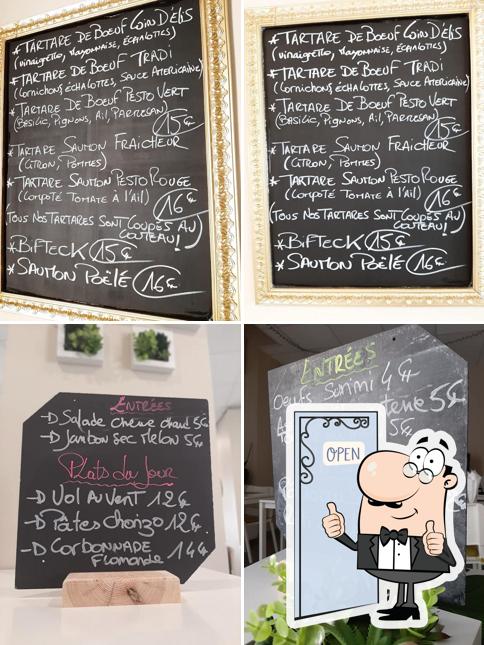 * TARTARE DE BOEUF COIN DÉLIS
(vinaigrette, Mayonnaise, ÉCHALOTTES)
* TARTARE DE BOEUF TRADI
(CORNICHONS ÉCHALOTTES, SAUCE AMERICAINE)
* TARTARE DE BOEUF PESTO VERT
(BASILIC, PIGNONS, AIL, PARMESAN)
15€
* TARTARE SAUMON FRAICHEUR
(CITRON, POMMES)
* TARTARE SAUMON PESTO ROUGE
(COMPOTÉ TOMATE À L'AIL)
16€
(TOUS NOS TARTARES SONT COUPÉS AU
COUTEAU!)
* BIFTECK 15€
* SAUMON POÊLÉ 16€
* TARTARE DE BOEUF COIN DÉLIS
(vinaigrette, Mayonnaise, ÉCHALOTTES)
* TARTARE DE BOEUF TRADI
(CORNICHONS ÉCHALOTTES, SAUCE AMERICAINE)
* TARTARE DE BOEUF PESTO VERT
(BASILIC, PIGNONS, AIL, PARMESAN)
15€
* TARTARE SAUMON FRAICHEUR
(CITRON, POMMES)
* TARTARE SAUMON PESTO ROUGE
(COMPOTÉ TOMATE À L'AIL)
16€
(TOUS NOS TARTARES SONT COUPÉS AU
COUTEAU!)
* BIFTECK 15€
* SAUMON POÊLÉ 16€
ENTRÉES
-D Salade chèvre chaud 5€
-D Jambon sec Melon 5€
Plats du Jour
-D VOL AU VENT 12€
-D Pâtes Chorizo 12€
-D CARBONNADE 14€
Flamande
ENTRÉES
Oeufs Surimi 4€
terrine 5€
5€
OPEN